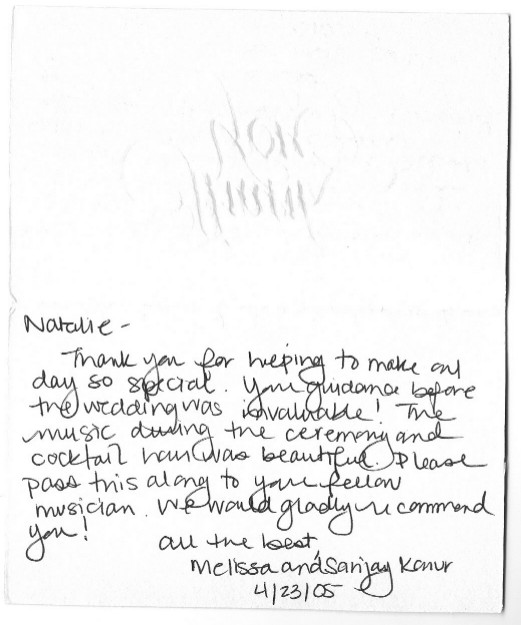 Natalie -
Thank you for helping to make our
day so special. Your guidance before
the wedding was invaluable! The
music during the ceremony and
cocktail hour was beautiful. Please
pass this along to your fellow
musician. We would gladly recommend
you!
all the best,
Melissa and Sanjay Kanur
4/23/05